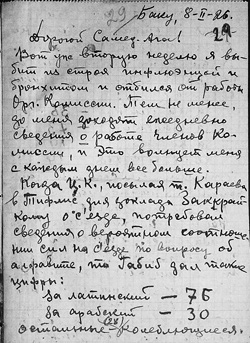 29
Баку, 8-II-26.
29
Дорогой Самед-Ага!
Вот уже вторую неделю я вы-
бит из строя инфлюэнцей и
бронхитом и отбился от работы
Орг. Комиссии. Тем не менее,
до меня доходят ежедневно
сведения о работе членов Ко-
миссии, и это волнует меня
с каждым днем все больше.
Когда Ц.К., посылая т. Караева
в Тифлис, для доклада Заккрай-
кому о с'езде, потребовал
сведения о вероятном соотноше-
нии сил на с'езде по вопросу об
алфавите, то Габиб дал такие
цифры:
За латинский — 75
За арабский — 30
остальные колеблющиеся.